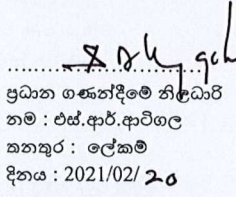 ප්‍රධාන ගණන්දීමේ නිලධාරි
නම : එස්.ආර්.ආටිගල
තනතුර : ලේකම්
දිනය : 2021/02/20